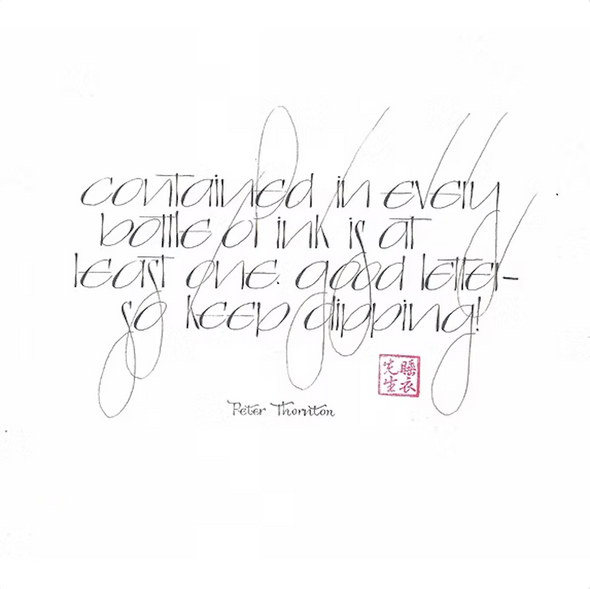 contained in every
bottle of ink is at
least one good letter-
so keep dipping!
睡衣
先生
Peter Thornton